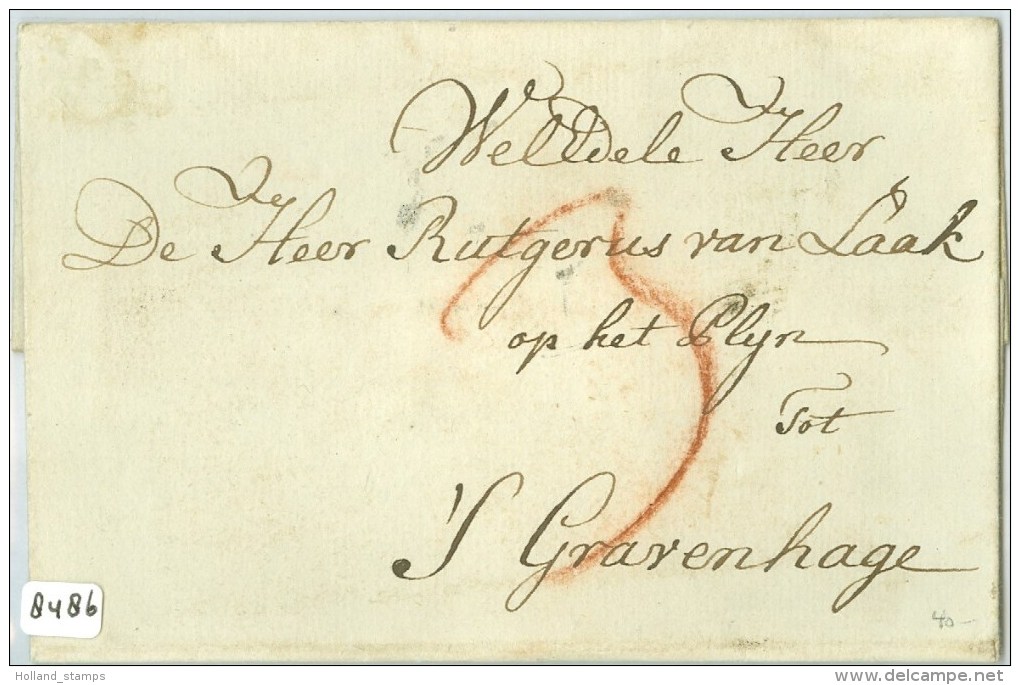 WelEdele Heer
De Heer Rutgerus van Laak
op het Plyn
Tot
'S Gravenhage
3
8486
40-
Holland_stamps
www.delcampe.net